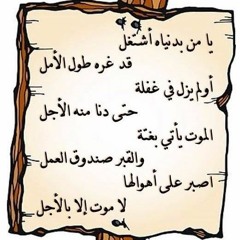 يا من بدنياه أشتغل
قد غره طول الأمل
أولم يزل في غفلة
حتى دنا منه الأجل
الموت يأتي بغتة
والقبر صندوق العمل
اصبر على أهوالها
لا موت إلا بالأجل